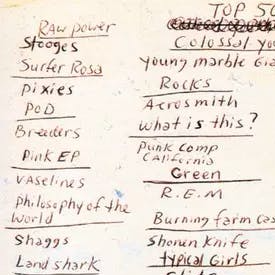 TOP 50
Raw power
Stooges
Surfer Rosa
Pixies
PoD
Breeders
Pink EP
Vaselines
Philosophy of the
World
Shaggs
Land shark
Colossal yo
young marble Gia
Rocks
Aerosmith
What is this?
Punk Comp
California
Green
R.E.M
Burning farm cas
Shonen Knife
Typical Girls